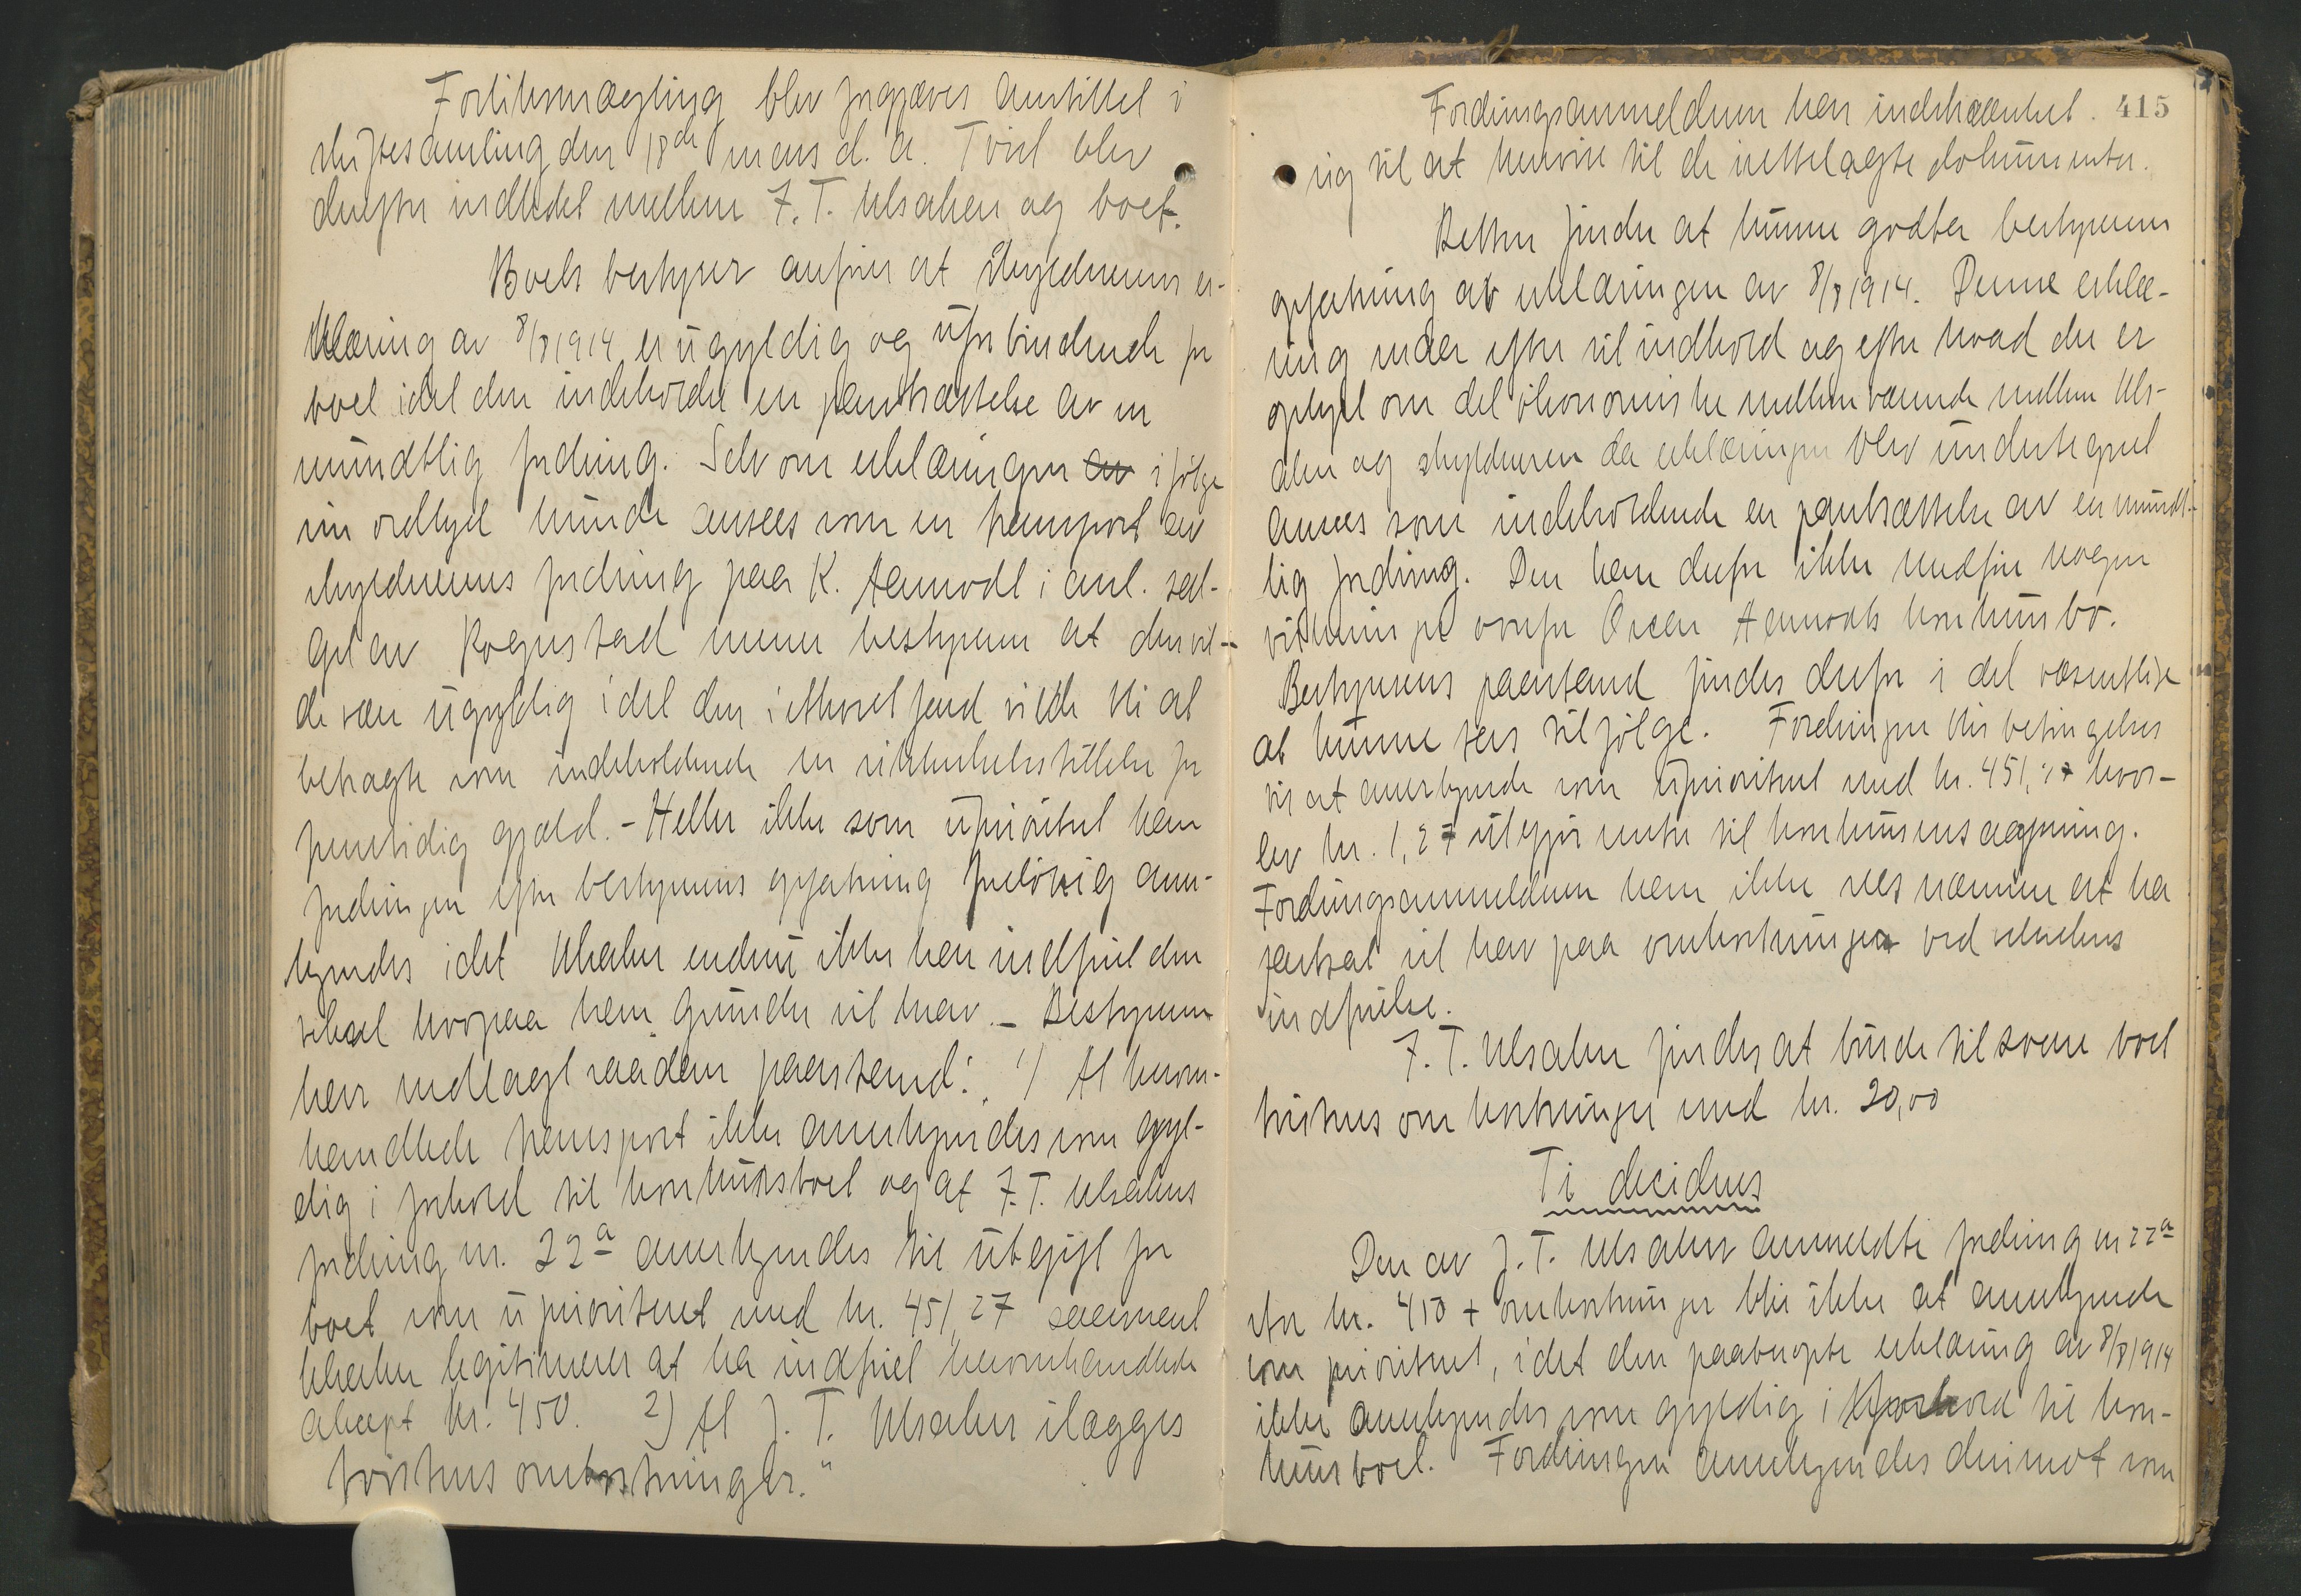 Forliksmægling blev forgjæves anstillet i
skiftesamling den 18de mars d. a. Tvist blev
derefter indledet mellem J. T. Ulsaker og boet.
Boets bestyrer anfører at skyldnerens er-
klæring av 8/8 1914 er ugyldig og uforbindende for
boet idet den indeholder en pantsættelse av en
mundtlig fordring. Selv om erklæringen av ifølge
sin ordlyd kunde ansees som en transport av
skyldnerens fordring paa K. Aamodt i anl. sal-
get av Rognstad mener bestyreren at den vil-
de være ugyldig idet den i ethvert fald vilde bli at
betragte som indeholdende en sikkerhetsstillelse for
fremtidig gjæld. - Heller ikke som uprioritert kan
fordringen efter bestyrerens opfatning foreløbig aner-
kjendes idet Ulsaker endnu ikke har indfriet den
veksel hvorpaa han grunder sit krav. - Bestyreren
har nedlagt saadan paastand: 1) At heromm-
handlede transport ikke anerkjendes som gyl-
dig i forhold til konkursboet og at J. T. Ulsakers
fordring nr. 22a anerkjendes til utgift for
boet som uprioritert med kr. 451,27 saasnart
Ulsaker legitimerer at ha indfriet heromhandlede
aksept kr. 450. 2) At J. T. Ulsaker ilægges
tvistens omkostninger."
415
Fordringsanmelderen har indskrænket
sig til at henvise til de irettelagte dokumenter.
Retten finder at kunne godta bestyrerens
opfatning av erklæringen av 8/8 1914. Denne erklæ-
ring maa efter sit indhold og efter hvad der er
oplyst om det økonomiske mellemværende mellem Uls-
aker og skyldneren da erklæringen blev undertegnet
ansees som indeholdende en pantsættelse av en mundt-
lig fordring. Den kan derfor ikke medføre nogen
virkning for ovenfor Oscar Aamodts konkursbo.
Bestyrerens paastand findes derfor i det væsentlige
at kunne tas tilfølge. Fordringen blir betingelses
vis at anerkjende som uprioritert med kr. 451,27 hvor-
av kr. 1,27 utgjør renter til konkursens aapning.
Fordringsanmelderen kan ikke sees nærmere at ha
fastsat sit krav paa omkostninger ved vekselens
indfrielse.
J. T. Ulsaker findes at burde tilsvare boet
tvistens omkostninger med kr. 20,00
Ti decideres
Den av J. T. Ulsaker anmeldte fordring nr 22a
stor kr. 450 + omkostninger blir ikke at anerkjende
som prioritert, idet den paaberopte erklæring av 8/8 1914
ikke anerkjendes som gyldig i forhold til kon-
kursboet. Fordringen anerkjendes derimot som